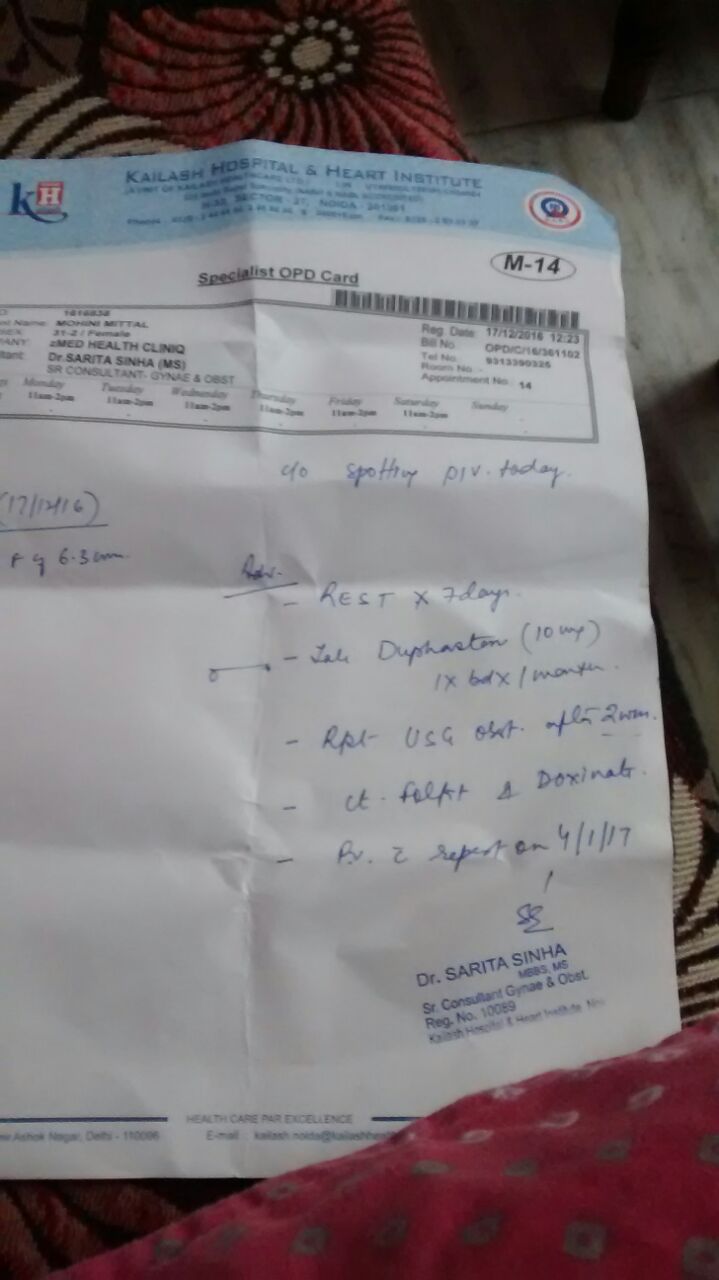 KH
KAILASH HOSPITAL & HEART INSTITUTE
(A UNIT OF KAILASH HEALTHCARE LTD.)
H-33, SECTOR - 27, NOIDA - 201301
M-14
Specialist OPD Card
1616838
Name: MOHINI MITTAL
31-2 / Female
zMED HEALTH CLINIQ
Dr.SARITA SINHA (MS)
SR CONSULTANT- GYNAE & OBST
Reg. Date: 17/12/2016 12:23
Bill No. OPD/C/16/361102
Tel No. 9313390325
Room No. -
Appointment No. 14
Monday Tuesday Wednesday Thursday Friday Saturday Sunday
11am-2pm 11am-2pm 11am-2pm 11am-2pm 11am-2pm 11am-2pm -
c/o spotting p/v. today.
(17/12/16)
6.3 wm.
Adv.
- REST x 7days.
- Tab Duphaston (10 mg)
1x bdx / month.
- Rpt USG obst. after 2 wm.
- ct. Folfit & Doxinate.
- Rv. c report on 4/1/17
Dr. SARITA SINHA
MBBS, MS
Sr. Consultant Gynae & Obst.
Reg. No. 10089
Kailash Hospital & Heart Institute
HEALTH CARE PAR EXCELLENCE
Ashok Nagar, Delhi - 110096 E-mail : kailash.noida@kailashheal